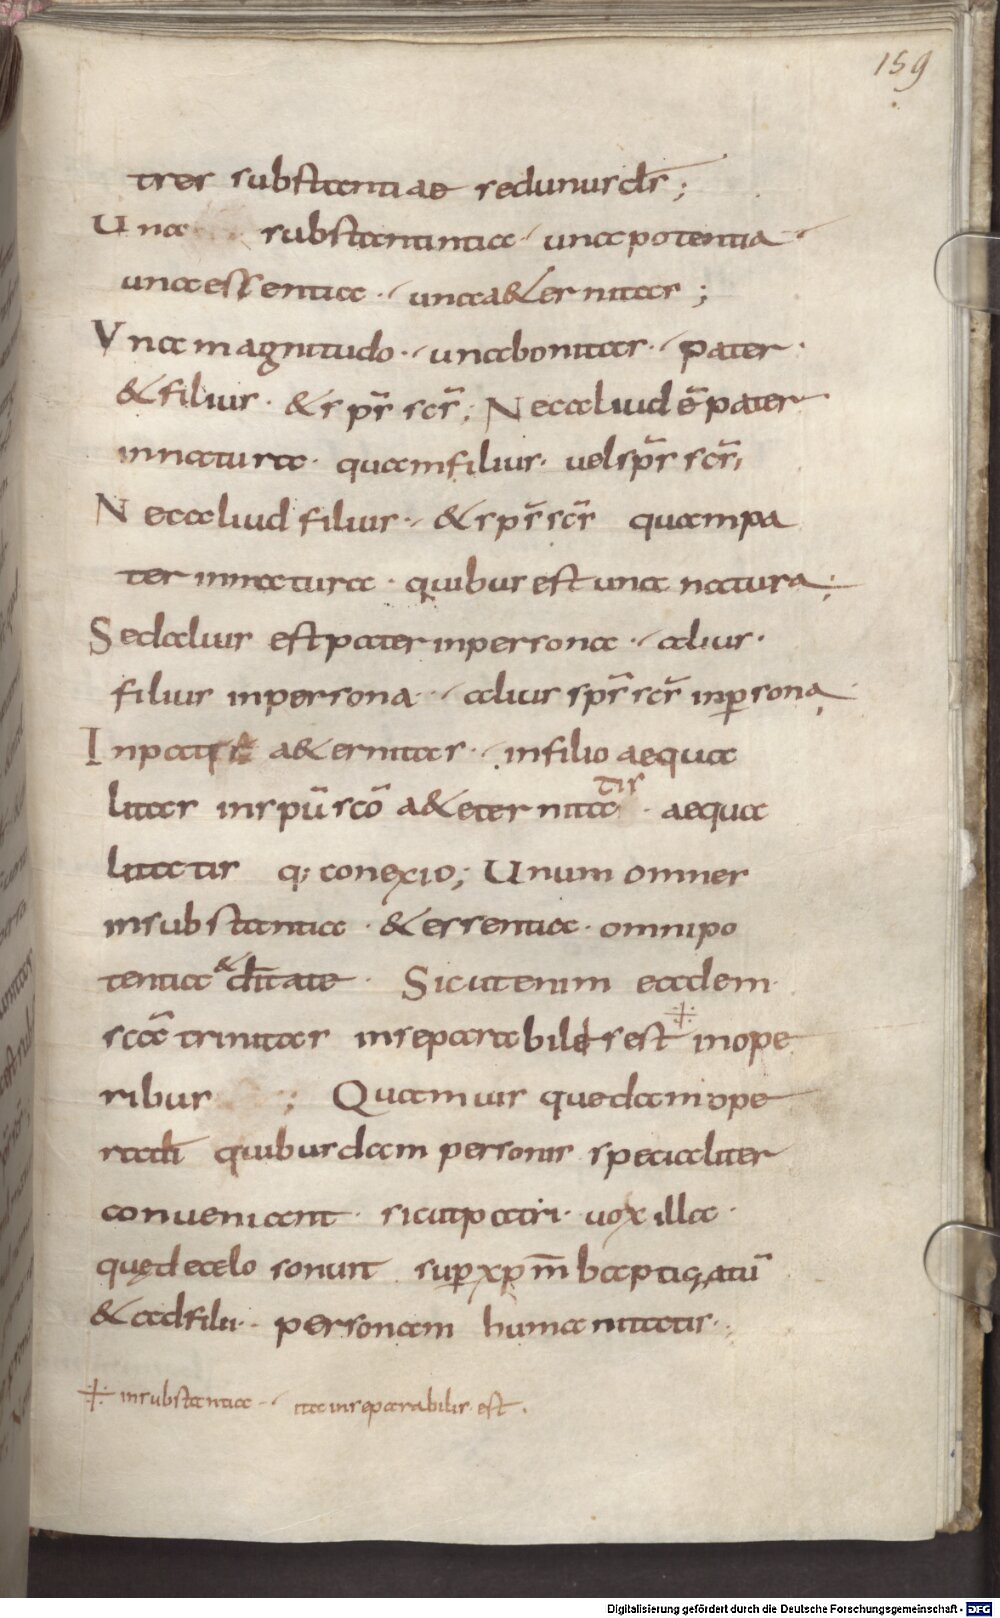 159
tres substantiae sed unus d̄s;
Una substantia· una potentia·
una essentia· una a&ernitas;
Una magnitudo· una bonitas· pater·
& filius· & sp̄s sc̄s; Nec aliud ē pater
in natura· quam filius· vel sp̄s sc̄s;
Nec aliud filius· & sp̄s sc̄s quam pa
ter in natura· quibus est una natura;
Sed alius est pater in persona· alius·
filius in persona· alius sp̄s sc̄s in p̱sona,
In patre a&ernitas· in filio aequa
litas in sp̄u sc̄o a&eternitatis· aequa
litatis q; conexio; Unum omnes
in substantia· & essentia· omnipo
tentia & d̄itate· Sicut enim eadem
sc̄a trinitas inseparabilis est ⁜ in ope
ribus ; Quamvis quedam ope
ra d̄i quibusdam personis specialiter
conveniant· sicut patri· vox illa·
quę de caelo sonuit sup̱ xp̄m baptizatū
& ad filii· personam humanitatis·
⁜ in substantia· ita inseparabilis est.
Digitalisierung gefördert durch die Deutsche Forschungsgemeinschaft - DFG